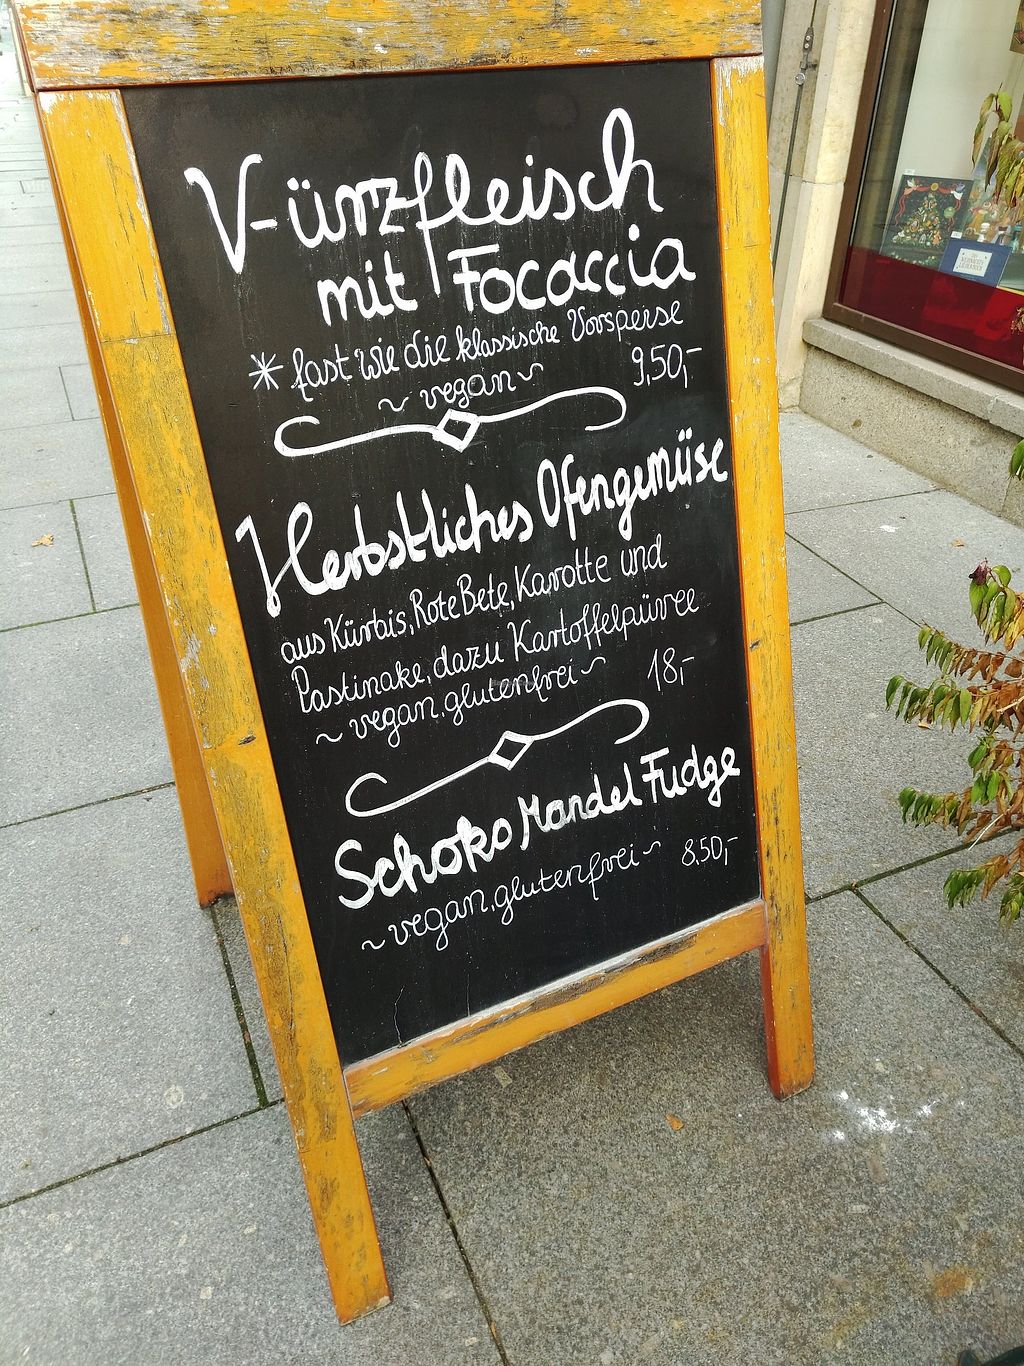 V-ürzfleisch
mit Focaccia
* fast wie die klassische Vorspeise
~ vegan ~ 9,50,-
Herbstliches Ofengemüse
aus Kürbis, Rote Bete, Karotte und
Pastinake, dazu Kartoffelpüree
~ vegan, glutenfrei ~ 18,-
Schoko Mandel Fudge
~ vegan, glutenfrei ~ 8.50,-